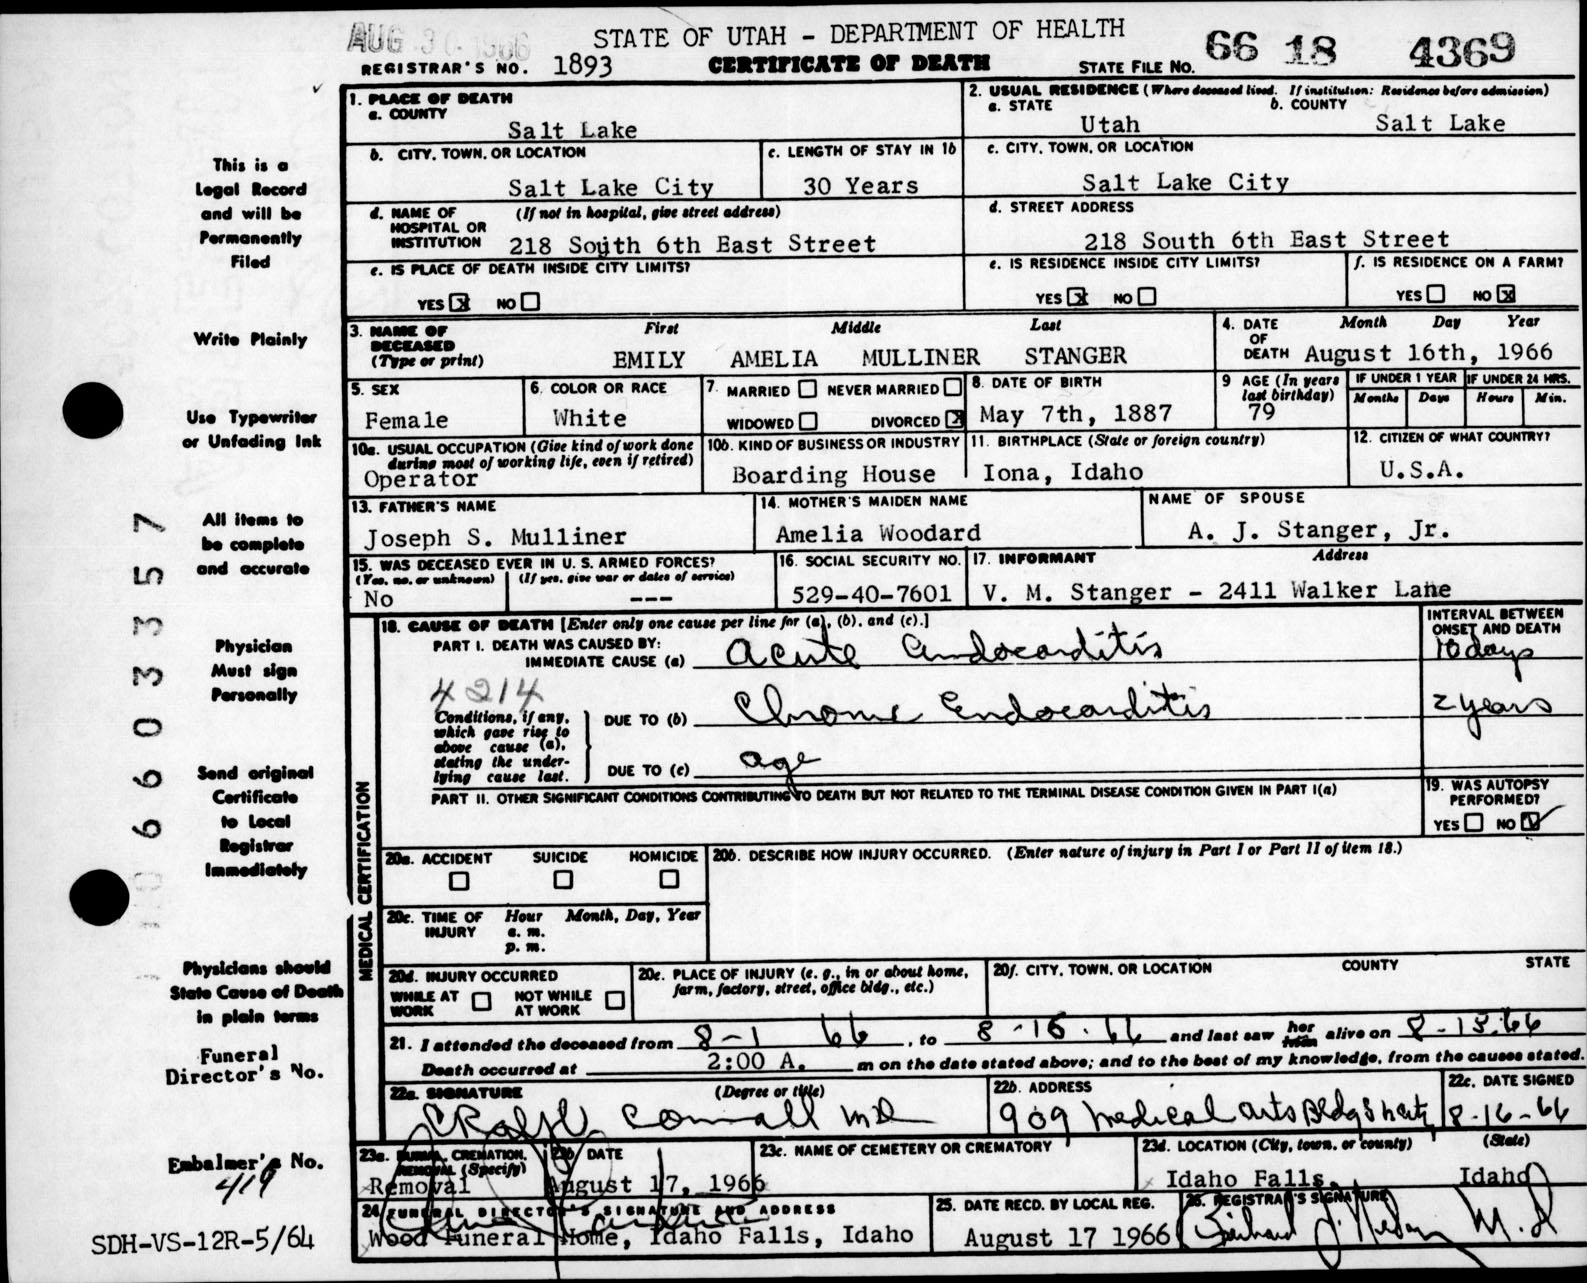 AUG 30 1966
STATE OF UTAH - DEPARTMENT OF HEALTH
REGISTRAR'S NO. 1893
CERTIFICATE OF DEATH
STATE FILE NO. 66 18 4369
This is a
Legal Record
and will be
Permanently
Filed
Write Plainly
Use Typewriter
or Unfading Ink
All items to
be complete
and accurate
Physician
Must sign
Personally
Send original
Certificate
to Local
Registrar
Immediately
Physicians should
State Cause of Death
in plain terms
Funeral
Director's No.
Embalmer's No.
419
SDH-VS-12R-5/64
6603357
1. PLACE OF DEATH
a. COUNTY
Salt Lake
2. USUAL RESIDENCE (Where deceased lived. If institution: Residence before admission)
a. STATE b. COUNTY
Utah Salt Lake
b. CITY, TOWN, OR LOCATION
Salt Lake City
c. LENGTH OF STAY IN 1b
30 Years
c. CITY, TOWN, OR LOCATION
Salt Lake City
d. NAME OF HOSPITAL OR INSTITUTION (If not in hospital, give street address)
218 South 6th East Street
d. STREET ADDRESS
218 South 6th East Street
e. IS PLACE OF DEATH INSIDE CITY LIMITS?
YES x NO
e. IS RESIDENCE INSIDE CITY LIMITS?
YES x NO
f. IS RESIDENCE ON A FARM?
YES NO x
3. NAME OF DECEASED (Type or print) First Middle Last
EMILY AMELIA MULLINER STANGER
4. DATE OF DEATH Month Day Year
August 16th, 1966
5. SEX
Female
6. COLOR OR RACE
White
7. MARRIED NEVER MARRIED
WIDOWED DIVORCED x
8. DATE OF BIRTH
May 7th, 1887
9 AGE (In years last birthday)
79
IF UNDER 1 YEAR IF UNDER 24 HRS.
Months Days Hours Min.
10a. USUAL OCCUPATION (Give kind of work done during most of working life, even if retired)
Operator
10b. KIND OF BUSINESS OR INDUSTRY
Boarding House
11. BIRTHPLACE (State or foreign country)
Iona, Idaho
12. CITIZEN OF WHAT COUNTRY?
U.S.A.
13. FATHER'S NAME
Joseph S. Mulliner
14. MOTHER'S MAIDEN NAME
Amelia Woodard
NAME OF SPOUSE
A. J. Stanger, Jr.
15. WAS DECEASED EVER IN U. S. ARMED FORCES?
(Yes, no, or unknown) (If yes, give war or dates of service)
No ---
16. SOCIAL SECURITY NO.
529-40-7601
17. INFORMANT Address
V. M. Stanger - 2411 Walker Lane
MEDICAL CERTIFICATION
18. CAUSE OF DEATH [Enter only one cause per line for (a), (b), and (c).]
INTERVAL BETWEEN ONSET AND DEATH
PART I. DEATH WAS CAUSED BY:
IMMEDIATE CAUSE (a) Acute Endocarditis 10 days
4214
Conditions, if any, which gave rise to above cause (a), stating the underlying cause last.
DUE TO (b) Chronic Endocarditis 2 years
DUE TO (c) age
PART II. OTHER SIGNIFICANT CONDITIONS CONTRIBUTING TO DEATH BUT NOT RELATED TO THE TERMINAL DISEASE CONDITION GIVEN IN PART I(a)
19. WAS AUTOPSY PERFORMED?
YES NO ✓
20a. ACCIDENT SUICIDE HOMICIDE
20b. DESCRIBE HOW INJURY OCCURRED. (Enter nature of injury in Part I or Part II of item 18.)
20c. TIME OF INJURY Hour Month, Day, Year
a. m.
p. m.
20d. INJURY OCCURRED
WHILE AT WORK NOT WHILE AT WORK
20e. PLACE OF INJURY (e. g., in or about home, farm, factory, street, office bldg., etc.)
20f. CITY, TOWN, OR LOCATION COUNTY STATE
21. I attended the deceased from 8-1 66, to 8-16-66 and last saw her him alive on 8-15-66
Death occurred at 2:00 A. m on the date stated above; and to the best of my knowledge, from the causes stated.
22a. SIGNATURE (Degree or title)
C Ralph Cornwall MD
22b. ADDRESS
909 Medical Arts Bldg
22c. DATE SIGNED
8-16-66
23a. BURIAL, CREMATION, REMOVAL (Specify)
Removal
23b DATE
August 17, 1966
23c. NAME OF CEMETERY OR CREMATORY
23d. LOCATION (City, town, or county) (State)
Idaho Falls, Idaho
24 FUNERAL DIRECTOR'S SIGNATURE AND ADDRESS
Wood Funeral Home, Idaho Falls, Idaho
25. DATE RECD. BY LOCAL REG.
August 17 1966
26. REGISTRAR'S SIGNATURE
M. D